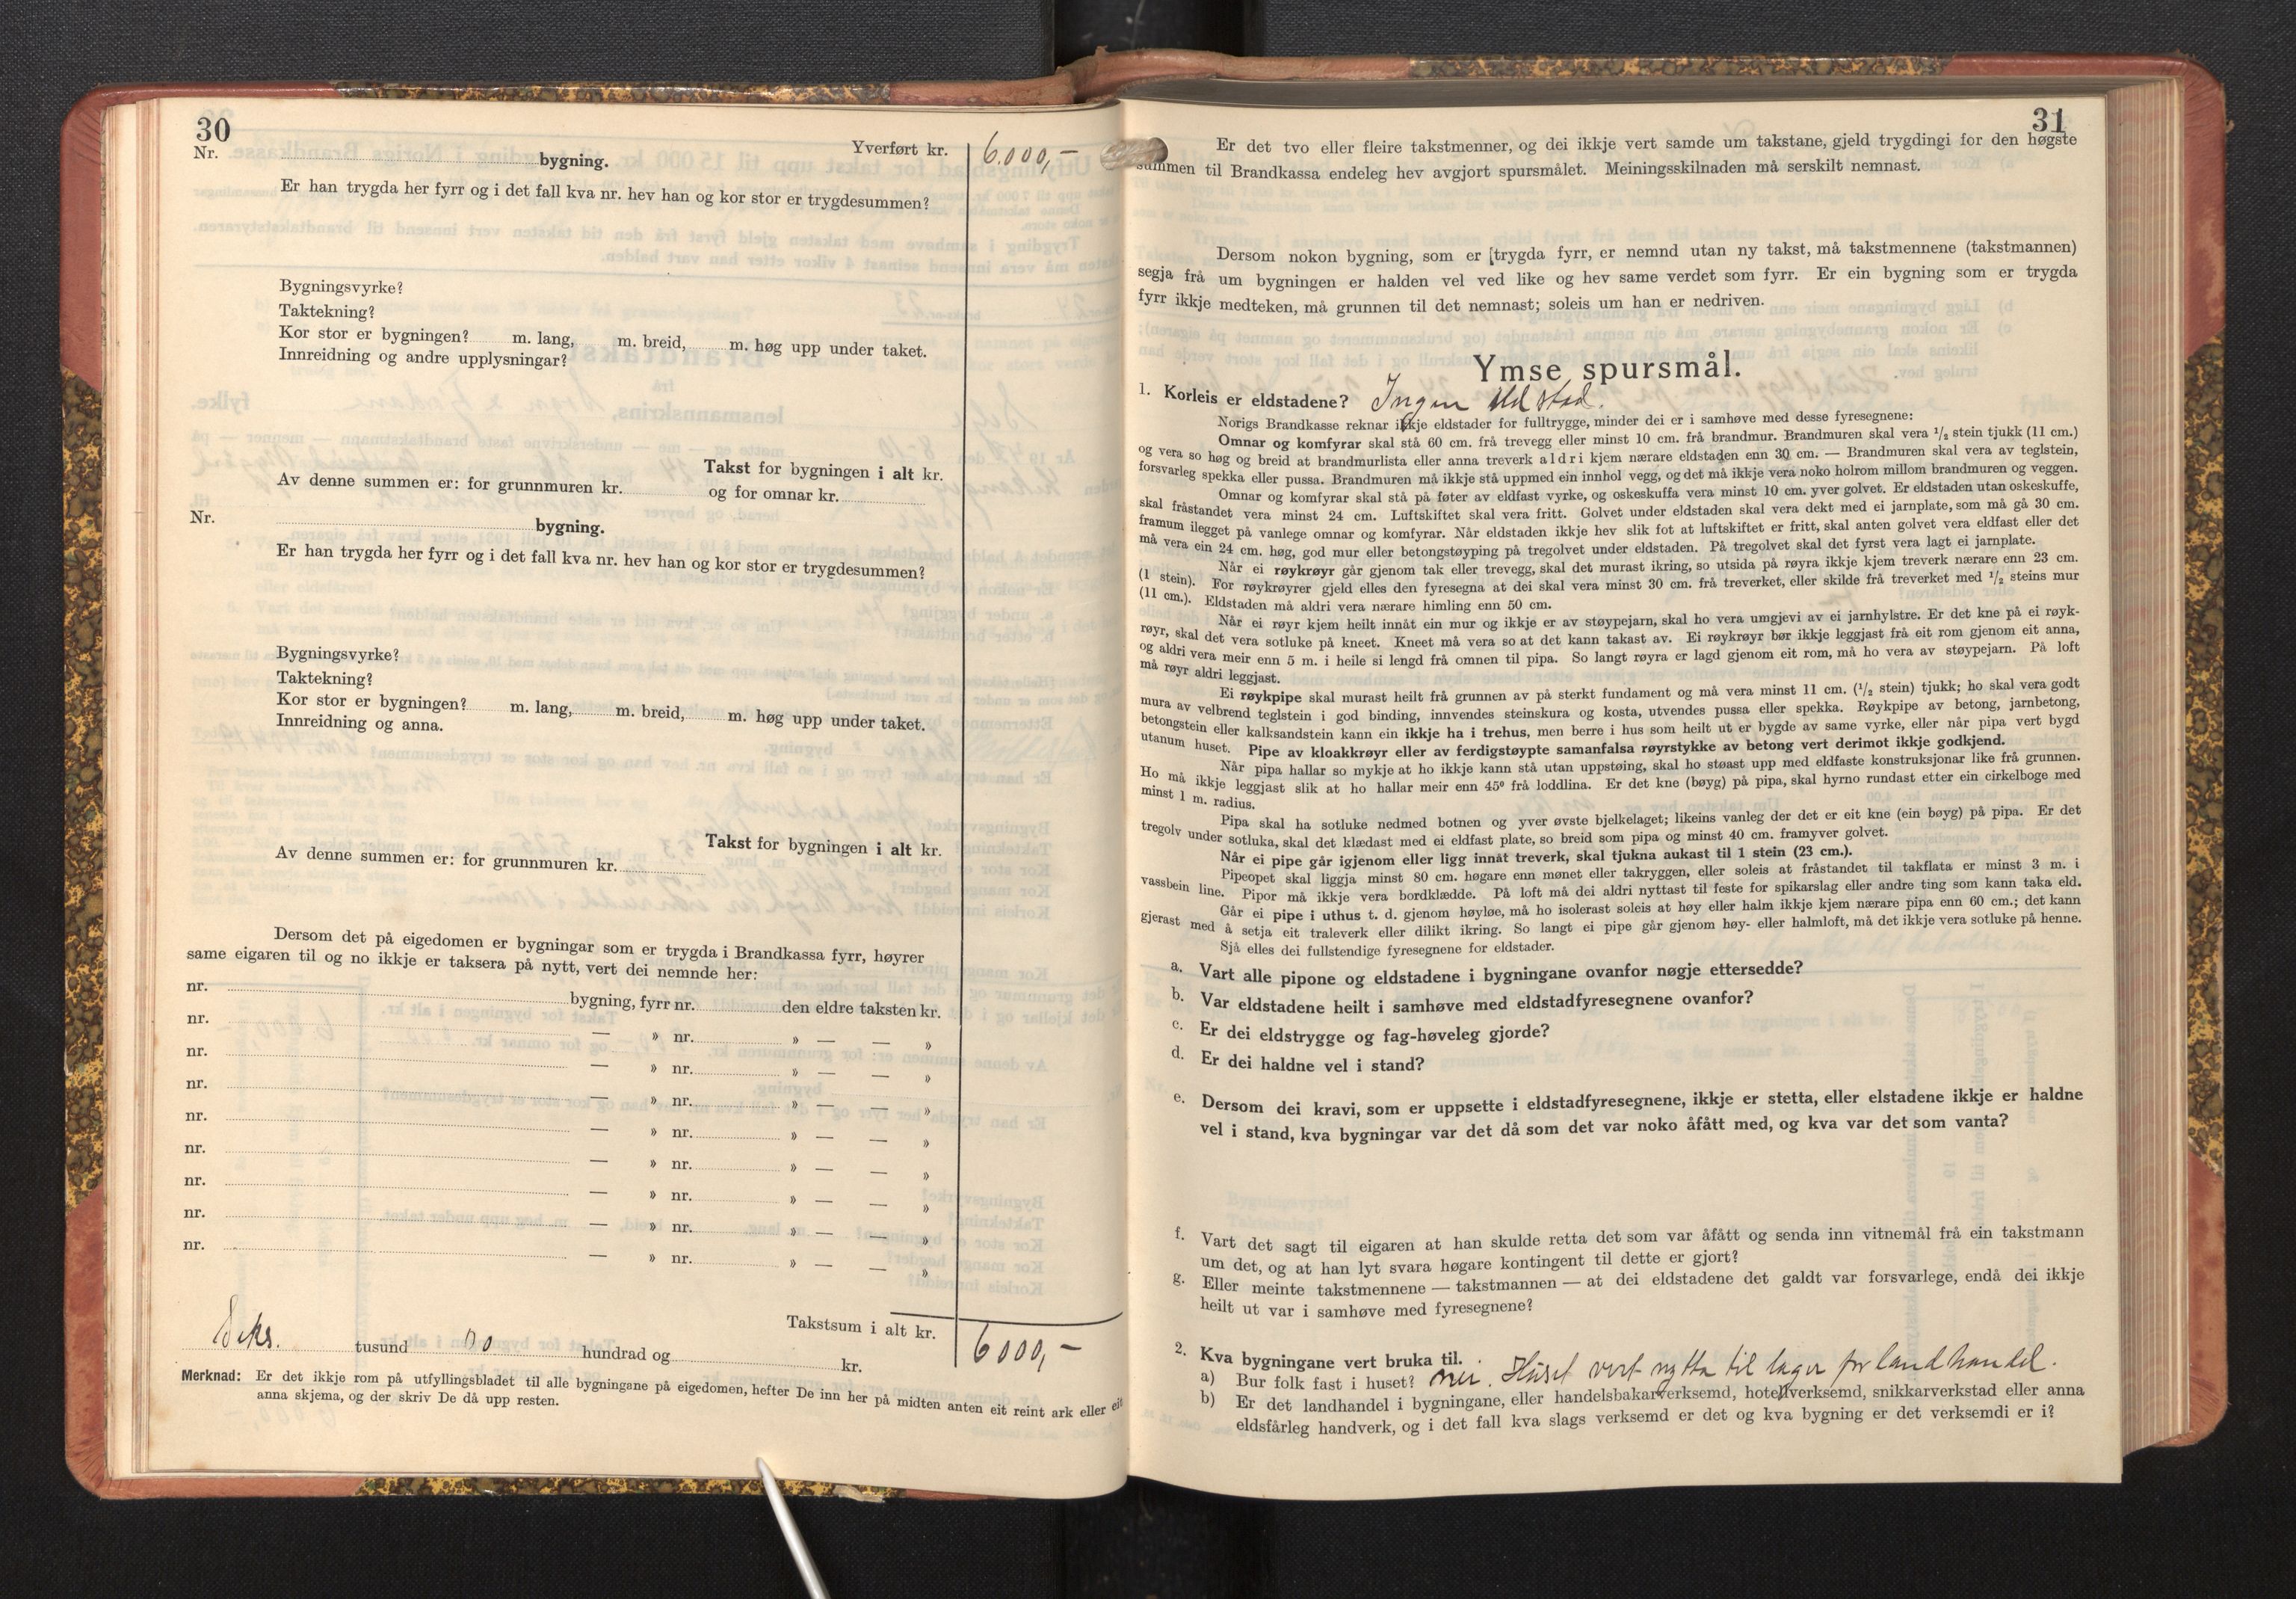 30
Nr. bygning. Yverført kr. 6.000,-
Er han trygda her fyrr og i det fall kva nr. hev han og kor stor er trygdesummen?
Bygningsvyrke?
Taktekning?
Kor stor er bygningen? m. lang, m. breid, m. høg upp under taket.
Innreidning og andre upplysningar?
Takst for bygningen i alt kr.
Av denne summen er: for grunnmuren kr. og for omnar kr.
Nr. bygning.
Er han trygda her fyrr og i det fall kva nr. hev han og kor stor er trygdesummen?
Bygningsvyrke?
Taktekning?
Kor stor er bygningen? m. lang, m. breid, m. høg upp under taket.
Innreidning og anna.
Takst for bygningen i alt kr.
Av denne summen er: for grunnmuren kr.
Dersom det på eigedomen er bygningar som er trygda i Brandkassa fyrr, høyrer
same eigaren til og no ikkje er taksera på nytt, vert dei nemnde her:
nr. bygning, fyrr nr. den eldre taksten kr.
nr. — » nr. » — — »
nr. — » nr. » — — »
nr. — » nr. » — — »
nr. — » nr. » — — »
nr. — » nr. » — — »
nr. — » nr. » — — »
nr. — » nr. » — — »
nr. — » nr. » — — »
Takstsum i alt kr. 6000,-
Seks. tusund no hundrad og kr.
Merknad: Er det ikkje rom på utfyllingsbladet til alle bygningane på eigedomen, hefter De inn her på midten anten eit reint ark eller eit
anna skjema, og der skriv De då upp resten.
31
Er det tvo eller fleire takstmenner, og dei ikkje vert samde um takstane, gjeld trygdingi for den høgste
summen til Brandkassa endeleg hev avgjort spursmålet. Meiningsskilnaden må serskilt nemnast.
Dersom nokon bygning, som er [trygda fyrr, er nemnd utan ny takst, må takstmennene (takstmannen)
segja frå um bygningen er halden vel ved like og hev same verdet som fyrr. Er ein bygning som er trygda
fyrr ikkje medteken, må grunnen til det nemnast; soleis um han er nedriven.
Ymse spursmål.
1. Korleis er eldstadene? Ingen eldstad.
Norigs Brandkasse reknar ikkje eldstader for fulltrygge, minder dei er i samhøve med desse fyresegnene:
Omnar og komfyrar skal stå 60 cm. frå trevegg eller minst 10 cm. frå brandmur. Brandmuren skal vera 1/2 stein tjukk (11 cm.)
og vera so høg og breid at brandmurlista eller anna treverk aldri kjem nærare eldstaden enn 30 cm. — Brandmuren skal vera av teglstein,
forsvarleg spekka eller pussa. Brandmuren må ikkje stå uppmed ein innhol vegg, og det må ikkje vera noko holrom millom brandmuren og veggen.
Omnar og komfyrar skal stå på føter av eldfast vyrke, og oskeskuffa vera minst 10 cm. yver golvet. Er eldstaden utan oskeskuffe,
skal fråstandet vera minst 24 cm. Luftskiftet skal vera fritt. Golvet under eldstaden skal vera dekt med ei jarnplate, som må gå 30 cm.
framum ilegget på vanlege omnar og komfyrar. Når eldstaden ikkje hev slik fot at luftskiftet er fritt, skal anten golvet vera eldfast eller det
må vera ein 24 cm. høg, god mur eller betongstøyping på tregolvet under eldstaden. På tregolvet skal det fyrst vera lagt ei jarnplate.
Når ei røykrøyr går gjenom tak eller trevegg, skal det murast ikring, so utsida på røyra ikkje kjem treverk nærare enn 23 cm.
(1 stein). For røykrøyrer gjeld elles den fyresegna at dei skal vera minst 30 cm. frå treverket, eller skilde frå treverket med 1/2 steins mur
(11 cm.). Eldstaden må aldri vera nærare himling enn 50 cm.
Når ei røyr kjem heilt innåt ein mur og ikkje er av støypejarn, skal ho vera umgjevi av ei jarnhylstre. Er det kne på ei røyk-
røyr, skal det vera sotluke på kneet. Kneet må vera so at det kann takast av. Ei røykrøyr bør ikkje leggjast frå eit rom gjenom eit anna,
og aldri vera meir enn 5 m. i heile si lengd frå omnen til pipa. So langt røyra er lagd gjenom eit rom, må ho vera av støypejarn. På loft
må røyr aldri leggjast.
Ei røykpipe skal murast heilt frå grunnen av på sterkt fundament og må vera minst 11 cm. (1/2 stein) tjukk; ho skal vera godt
mura av velbrend teglstein i god binding, innvendes steinskura og kosta, utvendes pussa eller spekka. Røykpipe av betong, jarnbetong,
betongstein eller kalksandstein kann ein ikkje ha i trehus, men berre i hus som heilt ut er bygde av same vyrke, eller når pipa vert bygd
utanum huset. Pipe av kloakkrøyr eller av ferdigstøypte samanfalsa røyrstykke av betong vert derimot ikkje godkjend.
Når pipa hallar so mykje at ho ikkje kann stå utan uppstøing, skal ho støast upp med eldfaste konstruksjonar like frå grunnen.
Ho må ikkje leggjast slik at ho hallar meir enn 45° frå loddlina. Er det kne (bøyg) på pipa, skal hyrno rundast etter ein cirkelboge med
minst 1 m. radius.
Pipa skal ha sotluke nedmed botnen og yver øvste bjelkelaget; likeins vanleg der det er eit kne (ein bøyg) på pipa. Er det
tregolv under sotluka, skal det klædast med ei eldfast plate, so breid som pipa og minst 40 cm. framyver golvet.
Når ei pipe går igjenom eller ligg innåt treverk, skal tjukna aukast til 1 stein (23 cm.).
Pipeopet skal liggja minst 80 cm. høgare enn mønet eller takryggen, eller soleis at fråstandet til takflata er minst 3 m. i
vassbein line. Pipor må ikkje vera bordklædde. På loft må dei aldri nyttast til feste for spikarslag eller andre ting som kann taka eld.
Går ei pipe i uthus t. d. gjenom høyløe, må ho isolerast soleis at høy eller halm ikkje kjem nærare pipa enn 60 cm.; det kann
gjerast med å setja eit traleverk eller dilikt ikring. So langt ei pipe går gjenom høy- eller halmloft, må det ikkje vera sotluke på henne.
Sjå elles dei fullstendige fyresegnene for eldstader.
a. Vart alle pipone og eldstadene i bygningane ovanfor nøgje ettersedde?
b. Var eldstadene heilt i samhøve med eldstadfyresegnene ovanfor?
c. Er dei eldstrygge og fag-høveleg gjorde?
d. Er dei haldne vel i stand?
e. Dersom dei kravi, som er uppsette i eldstadfyresegnene, ikkje er stetta, eller elstadene ikkje er haldne
vel i stand, kva bygningar var det då som det var noko åfått med, og kva var det som vanta?
f. Vart det sagt til eigaren at han skulde retta det som var åfått og senda inn vitnemål frå ein takstmann
um det, og at han lyt svara høgare kontingent til dette er gjort?
g. Eller meinte takstmennene — takstmannen — at dei eldstadene det galdt var forsvarlege, endå dei ikkje
heilt ut var i samhøve med fyresegnene?
2. Kva bygningane vert bruka til.
a) Bur folk fast i huset? nei. Huset vert nytta til lager for landhandel.
b) Er det landhandel i bygningane, eller handelsbakarverksemd, hotellverksemd, snikkarverkstad eller anna
eldsfårleg handverk, og i det fall kva slags verksemd er det og kva bygning er det verksemdi er i?